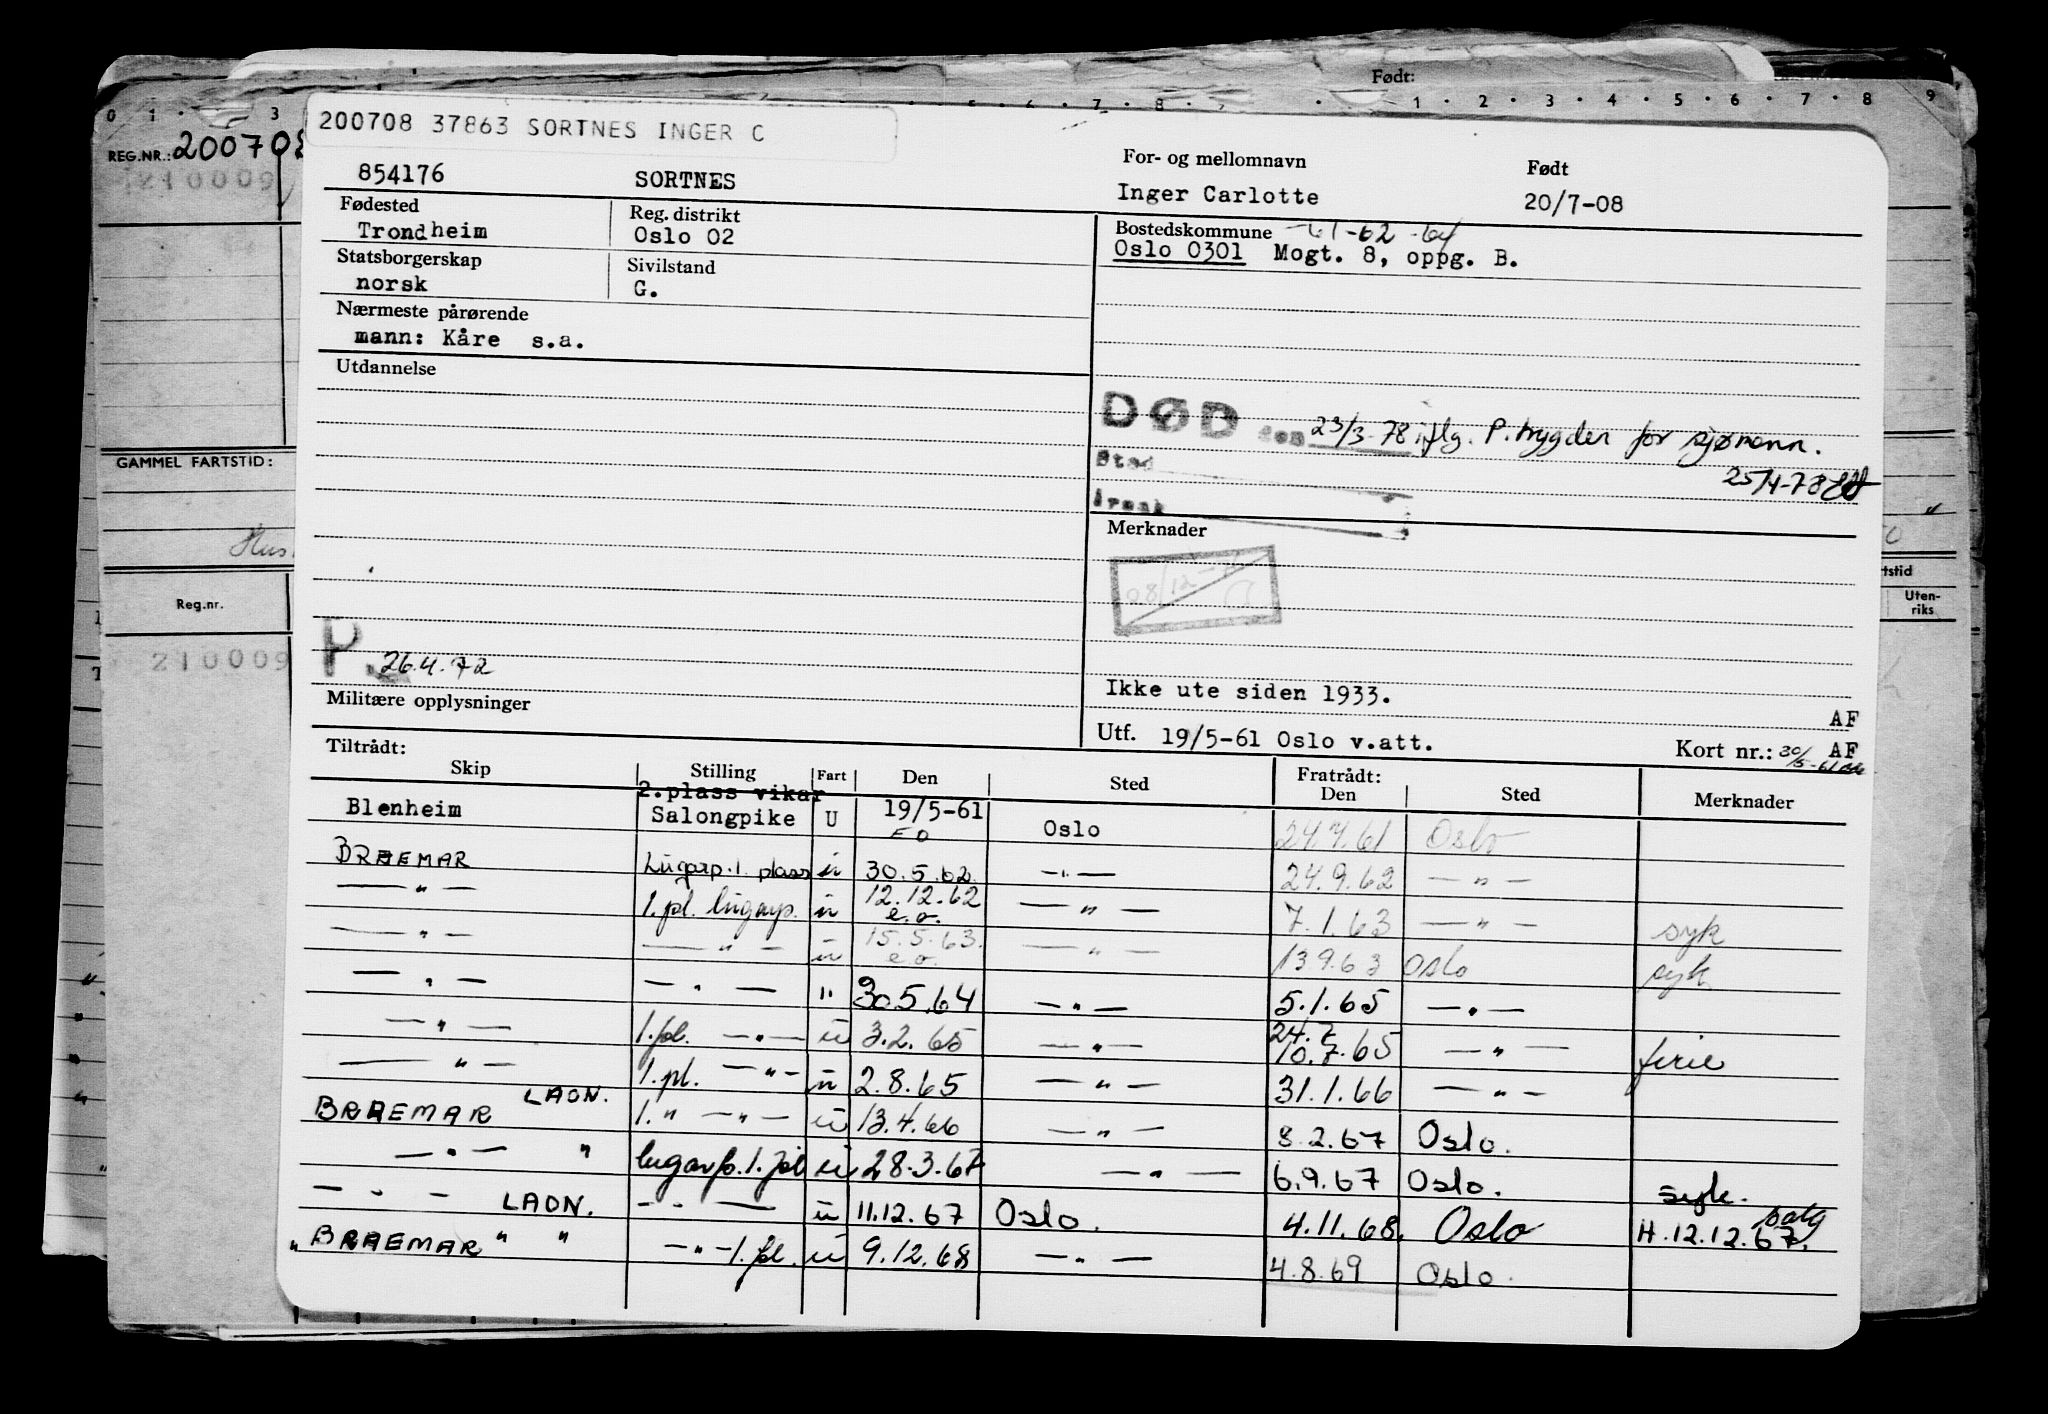 Født:
0 1 3 5 6 7 8 1 2 3 4 5 6 7 8 9
REG.NR.: 200708
210009
200708 37863 SORTNES INGER C
854176 SORTNES
For- og mellomnavn Født
Inger Carlotte 20/7-08
Fødested Reg. distrikt
Trondheim Oslo 02
Bostedskommune -61-62-64
Oslo 0301 Mogt. 8, oppg. B.
Statsborgerskap Sivilstand
norsk G.
Nærmeste pårørende
mann: Kåre s.a.
Utdannelse
DØD den 23/3-78 iflg. P.trygden for sjømenn.
Sted 25/4-78
Årsak
GAMMEL FARTSTID:
Merknader
Reg.nr.
Uten-
riks
210009
P. 26.4.72
Ikke ute siden 1933.
AF
Militære opplysninger
Utf. 19/5-61 Oslo v.att. Kort nr.: 30/5-61 AF
Tiltrådt: Fratrådt:
Skip Stilling Fart Den Sted Den Sted Merknader
2.plass vikar
Blenheim Salongpike U 19/5-61 Oslo 24.7.61 Oslo
EO
BRAEMAR Lugarp. 1. plass u 30.5.62 —"— 24.9.62 —"—
—"— 1.pl. lugarp. u 12.12.62 —"— 7.1.63 —"— syk
e.o.
—"— —"— u 15.5.63. —"— 13.9.63 Oslo syk
e.o.
—"— —"— " 30.5.64 —"— 5.1.65 —"—
24.7
—"— 1.pl. —"— u 3.2.65 —"— 10.7.65 —"— ferie
—"— 1.pl. —"— u 2.8.65 —"— 31.1.66 —"—
BRAEMAR LADN. 1." —"— u 13.4.66 —"— 8.2.67 Oslo.
—"— " lugarp. 1. pl u 28.3.67 —"— 6.9.67 Oslo. syk.
—"— LADN. —"— u 11.12.67 Oslo. 4.11.68. Oslo H.12.12.67.
" BRAEMAR " " —"— 1. pl. u 9.12.68 —"— 4.8.69 Oslo.